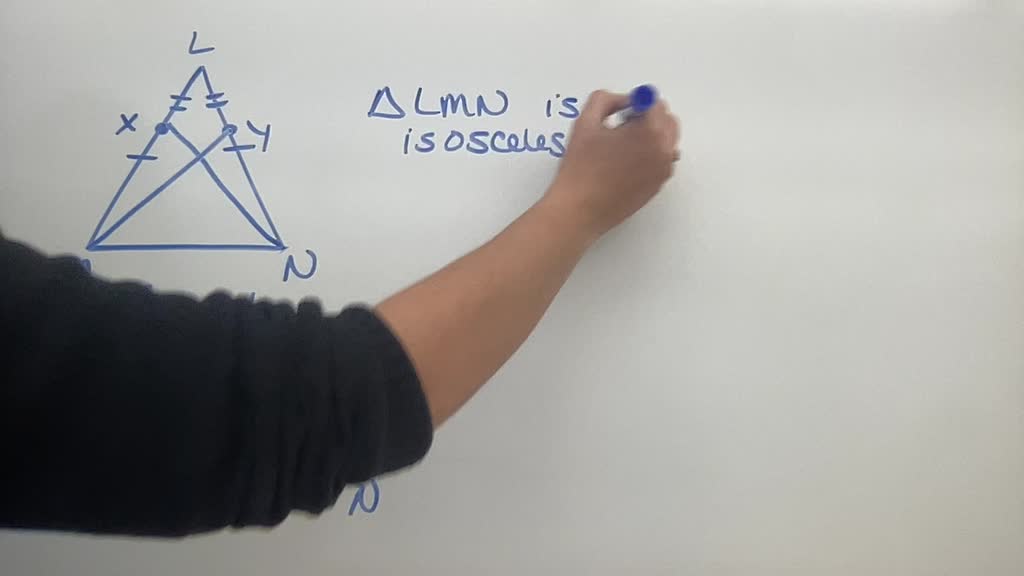 L
X
Y
N
△ LMN is
isosceles
N